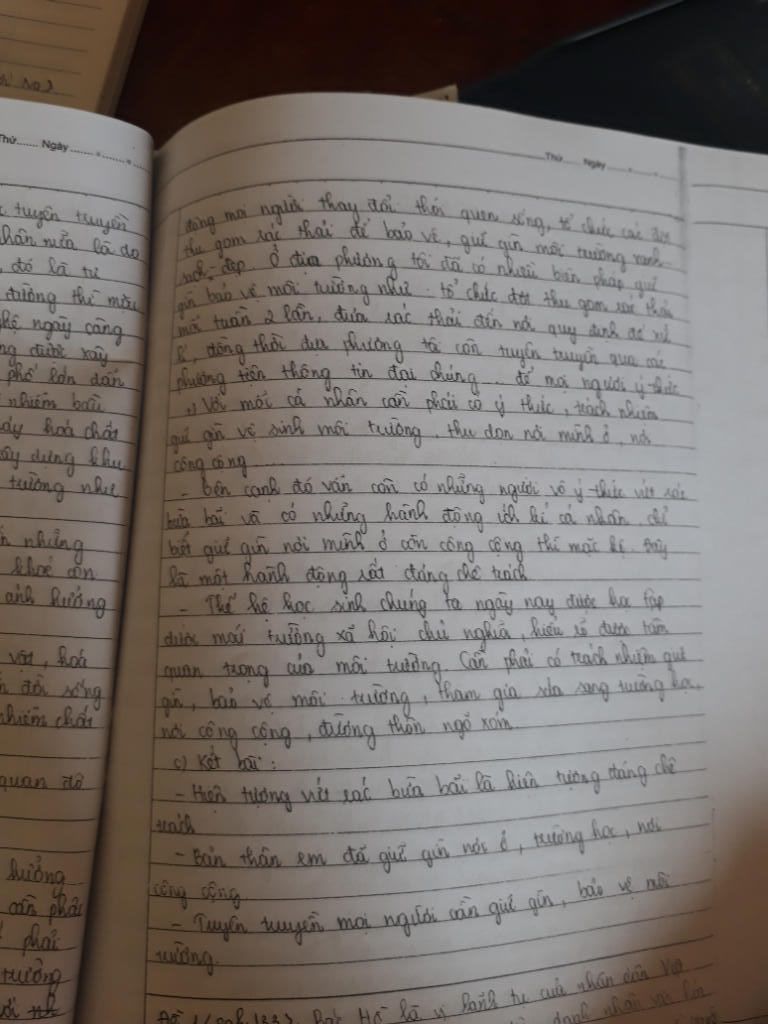 Thứ....... Ngày
tuyên truyền
nữa là do
đó là từ
đường thì
ngày càng
được xây
phố lớn dần
nhiễm bầu
hoá chất
xây dựng khu
tường như
những
khoẻ con
ảnh hưởng
vật, hoá
đời sống
nhiễm chất
quan đô
hưởng
cần phải
phải
tường
Thứ....... Ngày
động mọi người thay đổi thói quen sống, tổ chức các đợt
thu gom rác thải để bảo vệ, giữ gìn môi trường xanh-
sạch-đẹp. Ở địa phương tôi đã có nhiều biện pháp giữ
gìn bảo vệ môi trường như: tổ chức đợt thu gom rác thải
mỗi tuần 2 lần, đưa rác thải đến nơi quy định để xử
lí, đồng thời địa phương tôi còn tuyên truyền qua các
phương tiện thông tin đại chúng... để mọi người ý thức
Với mỗi cá nhân cần phải có ý thức, trách nhiệm
giữ gìn vệ sinh môi trường, thu dọn nơi mình ở, nơi
công cộng...
- Bên cạnh đó vẫn còn có những người vô ý thức vứt rác
bừa bãi và có những hành động ích kỉ cá nhân, chỉ
biết giữ gìn nơi mình ở còn công cộng thì mặc kệ. Đây
là một hành động rất đáng chê trách
- Thế hệ học sinh chúng ta ngày nay được học tập
dưới mái trường xã hội chủ nghĩa, hiểu rõ được tầm
quan trọng của môi trường. Cần phải có trách nhiệm giữ
gìn, bảo vệ môi trường, tham gia sửa sang trường học,
nơi công cộng, đường thôn ngõ xóm
c) Kết bài:
- Hiện tượng vứt rác bừa bãi là hiện tượng đáng chê
trách
- Bản thân em đã giữ gìn nơi ở, trường học, nơi
công cộng
- Tuyên truyền mọi người cần giữ gìn, bảo vệ môi
trường.
Bác Hồ là vị lãnh tụ của nhân dân Việt
danh nhân văn hóa